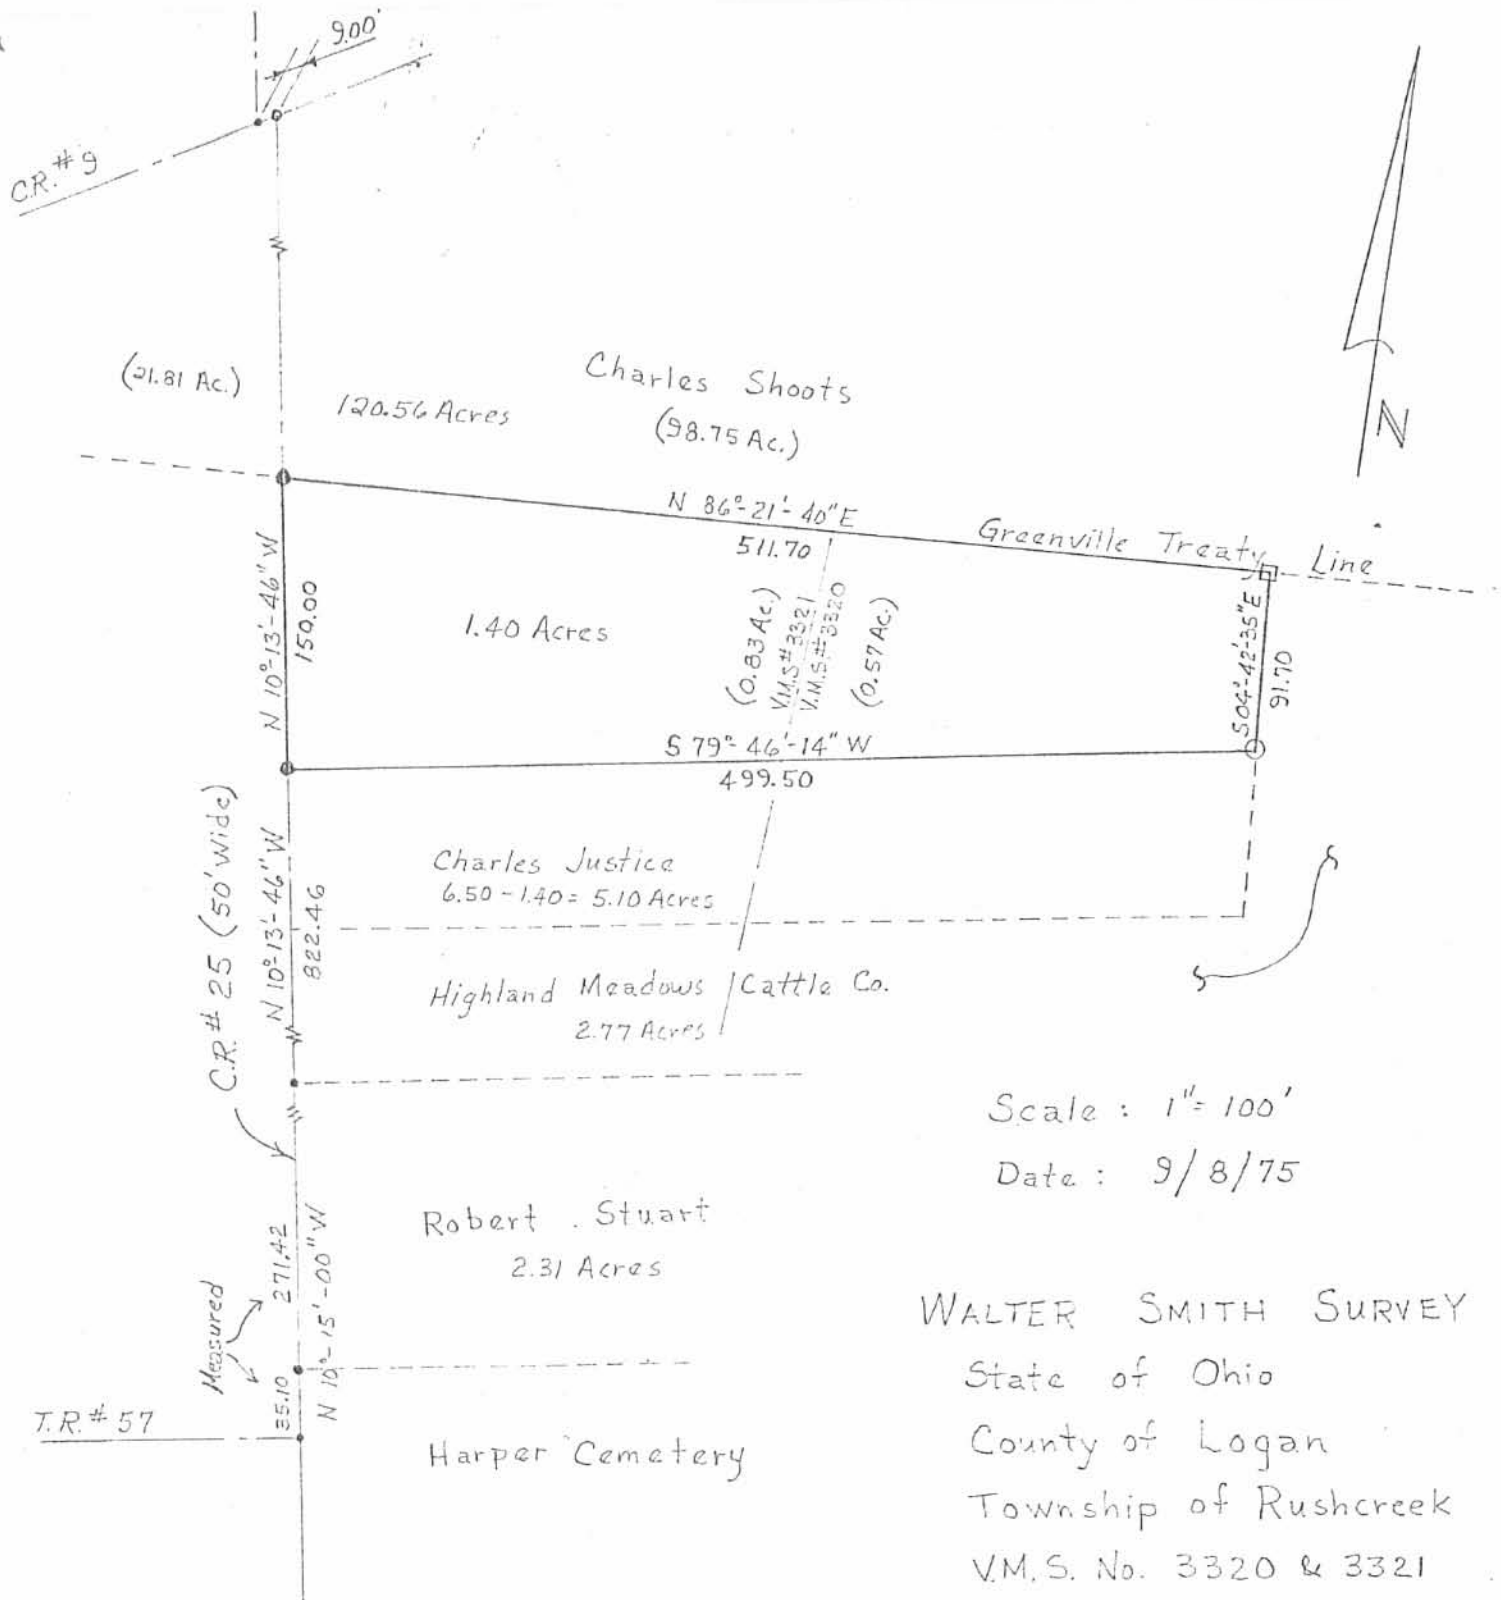 9.00'
C.R.#9
(21.81 Ac.)
120.56 Acres
Charles Shoots
(98.75 Ac.)
N 86°-21'-40"E
511.70
Greenville Treaty Line
N 10°-13'-46" W
150.00
1.40 Acres
(0.83 Ac.)
V.M.S#3321
V.M.S.#3320
(0.57 Ac.)
S 04°-42'-35"E
91.70
S 79°-46'-14" W
499.50
N
C.R.# 25 (50' Wide)
N 10°-13'-46" W
822.46
Charles Justice
6.50-1.40= 5.10 Acres
Highland Meadows Cattle Co.
2.77 Acres
Scale : 1"= 100'
Date : 9/8/75
Robert . Stuart
2.31 Acres
Measured
271.42
35.10
N 10°-15'-00" W
T.R.# 57
Harper Cemetery
WALTER SMITH SURVEY
State of Ohio
County of Logan
Township of Rushcreek
V.M.S. No. 3320 & 3321